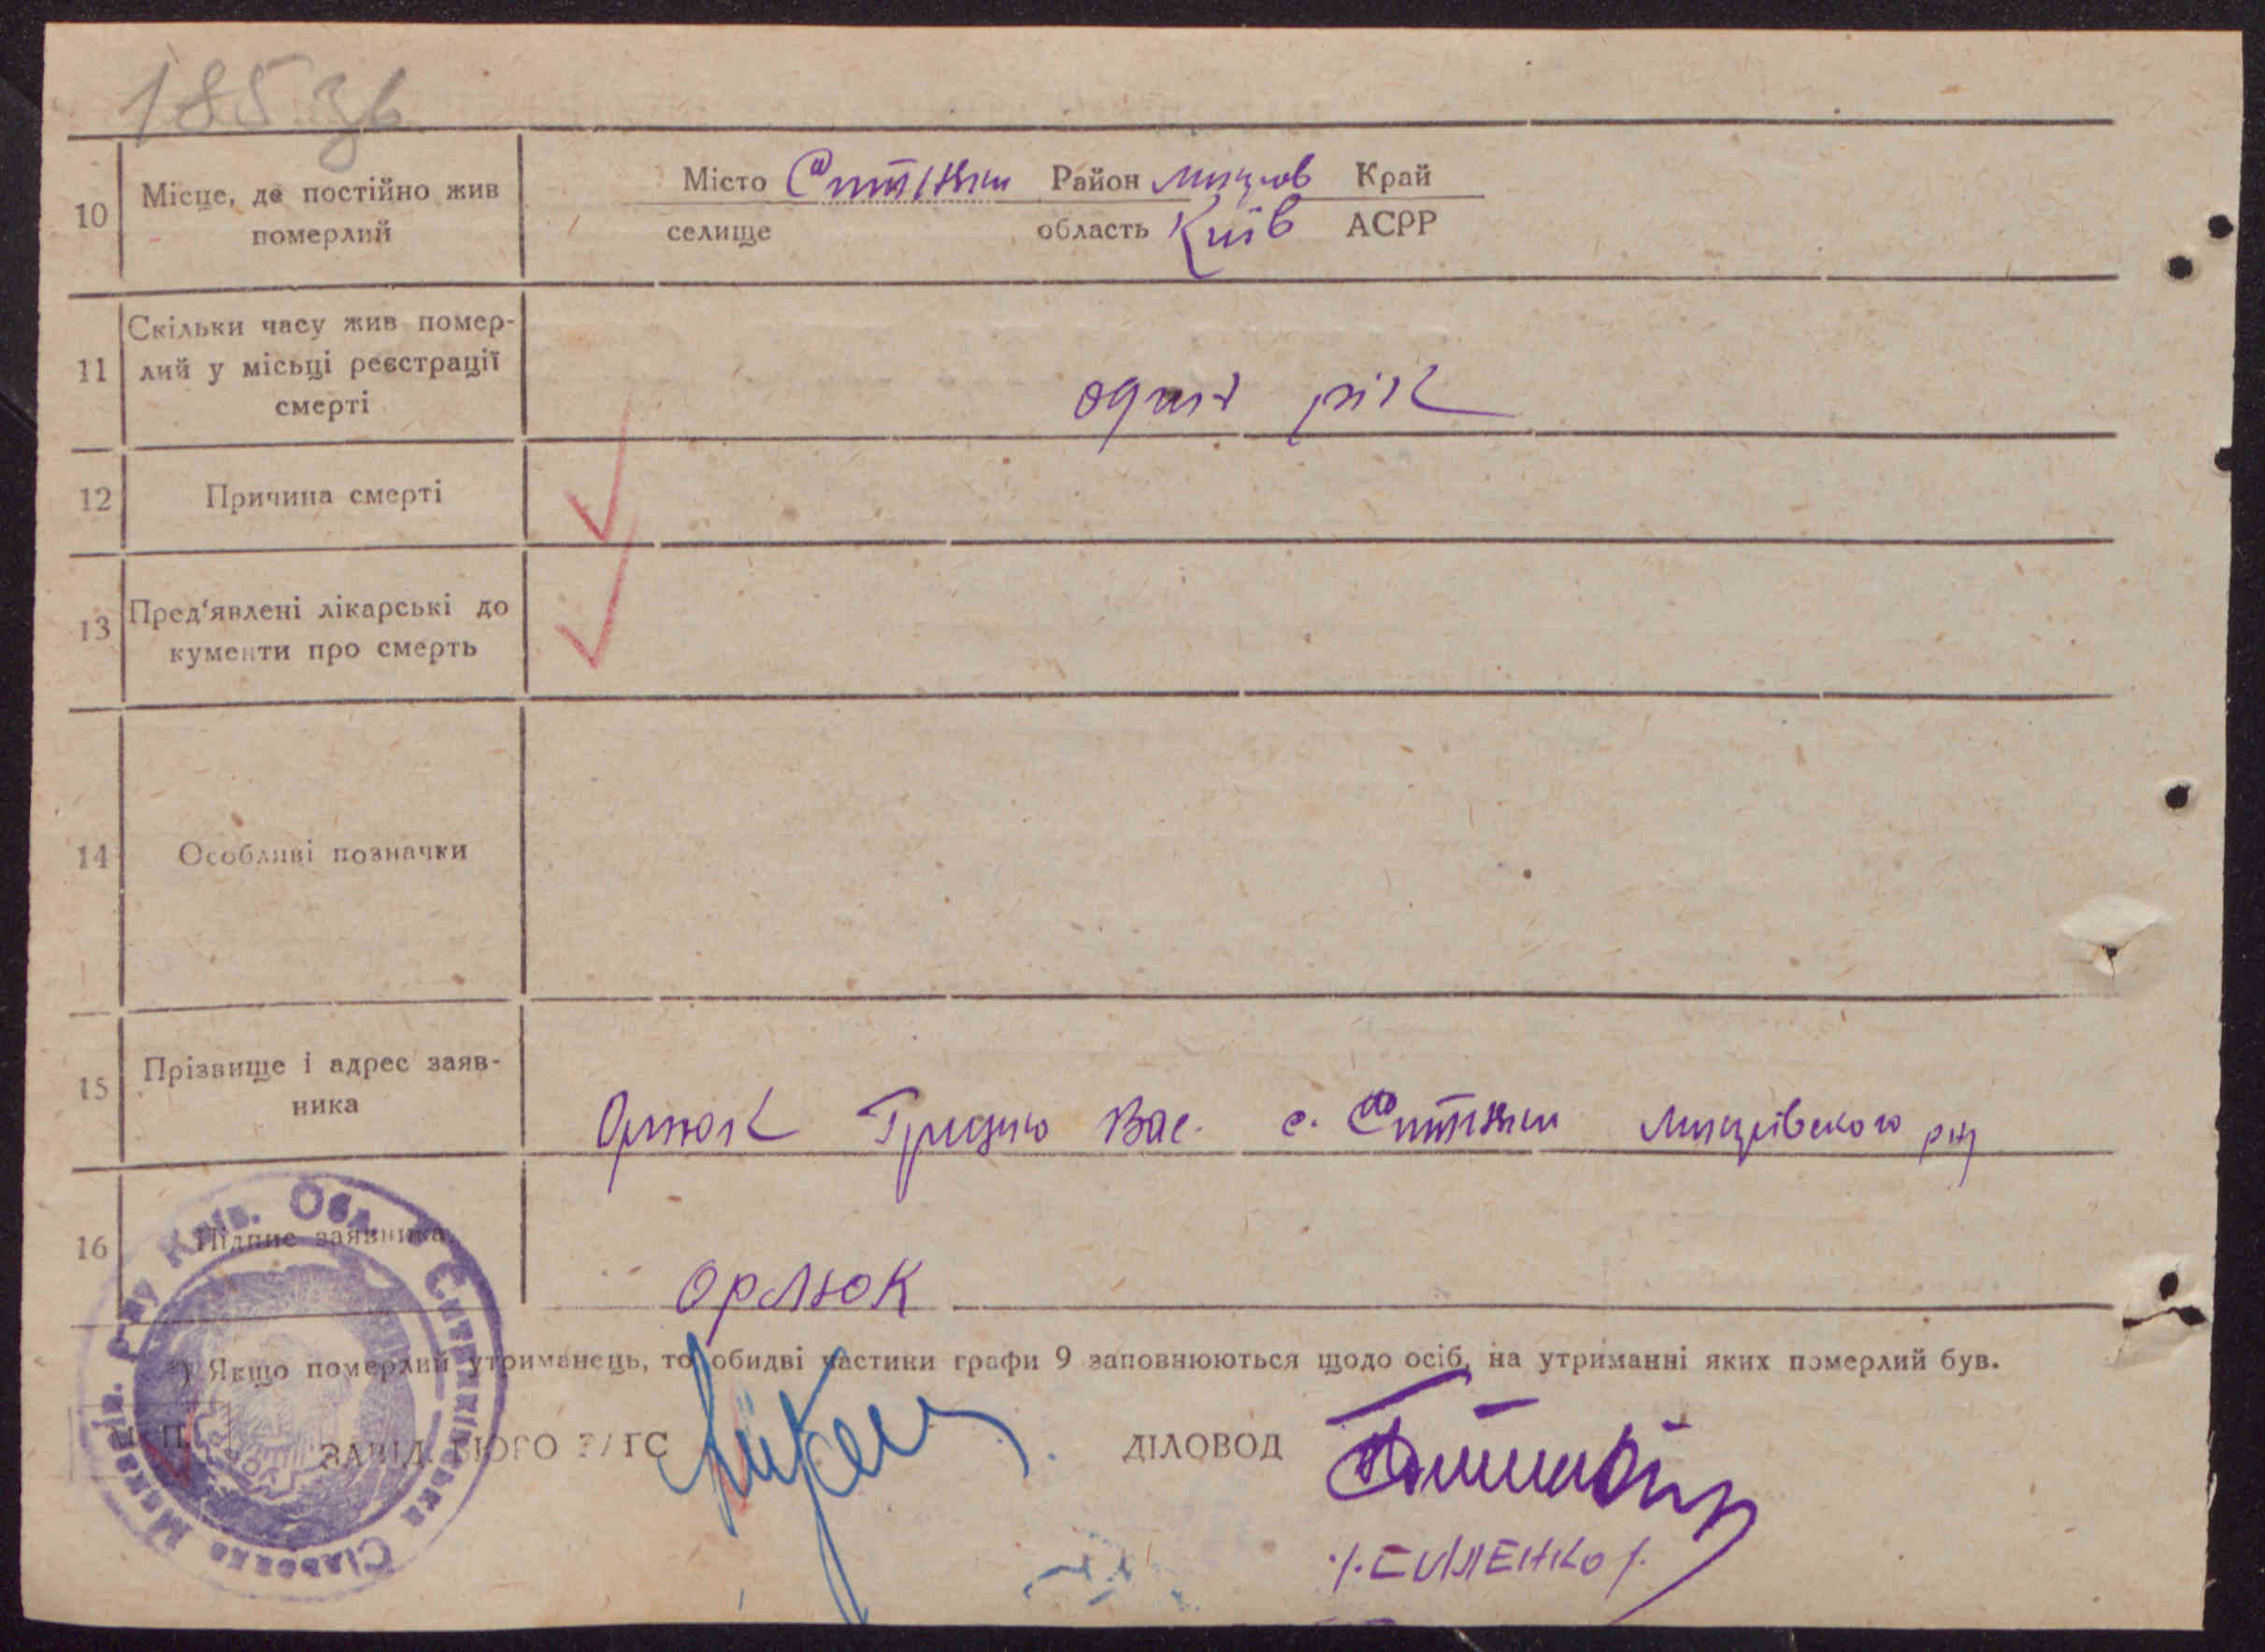 185 зв
10 Місце, де постійно жив померлий
Місто Ситняки Район Макарів Край
селище область Київ АСРР
11 Скільки часу жив помер-
лий у місьці реєстрації
смерті
один рік
12 Причина смерті
13 Пред'явлені лікарські до
кументи про смерть
14 Особливі позначки
15 Прізвище і адрес заяв-
ника
Орлюк Грицько Вас. с. Ситняки Макарівського р-н
16 Підпис заявника
ОРЛЮК
*) Якщо померлий утриманець, то обидві частини графи 9 заповнюються щодо осіб, на утриманні яких померлий був.
М. П.
ЗАВІД. БЮРО ЗАГС
ДІЛОВОД
Київ. Обл. Ситняківська Сільська